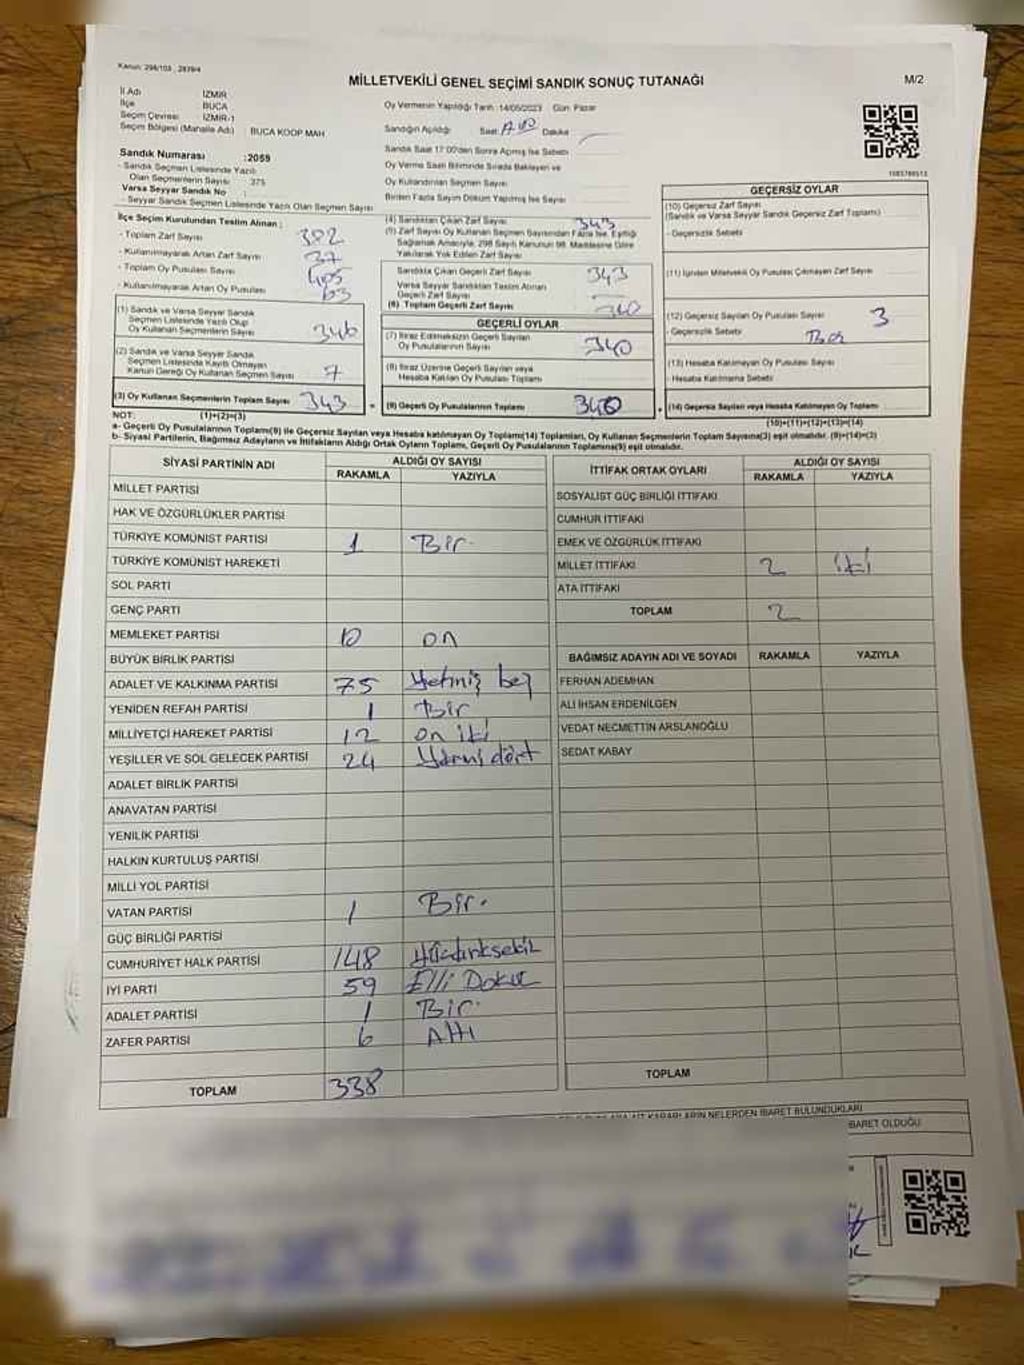 Kanun: 298/103 , 2839/4
MİLLETVEKİLİ GENEL SEÇİMİ SANDIK SONUÇ TUTANAĞI
M/2
İl Adı İZMİR
İlçe BUCA
Seçim Çevresi İZMİR-1
Seçim Bölgesi (Mahalle Adı) BUCA KOOP MAH
Sandık Numarası :2059
- Sandık Seçmen Listesinde Yazılı
Olan Seçmenlerin Sayısı : 375
Varsa Seyyar Sandık No :
- Seyyar Sandık Seçmen Listesinde Yazılı Olan Seçmen Sayısı
Oy Vermenin Yapıldığı Tarih :14/05/2023 Gün: Pazar
Sandığın Açıldığı Saat Dakika
Sandık Saat 17:00'den Sonra Açılmış İse Sebebi
Oy Verme Saati Bitiminde Sırada Bekleyen ve
Oy Kullandırılan Seçmen Sayısı
Birden Fazla Sayım Döküm Yapılmış İse Sayısı
İlçe Seçim Kurulundan Teslim Alınan :
- Toplam Zarf Sayısı 382
- Kullanılmayarak Artan Zarf Sayısı 37
- Toplam Oy Pusulası Sayısı 405
- Kullanılmayarak Artan Oy Pusulası 63
(1) Sandık ve Varsa Seyyar Sandık
Seçmen Listesinde Yazılı Olup
Oy Kullanan Seçmenlerin Sayısı 346
(2) Sandık ve Varsa Seyyar Sandık
Seçmen Listesinde Kayıtlı Olmayan
Kanun Gereği Oy Kullanan Seçmen Sayısı 7
(3) Oy Kullanan Seçmenlerin Toplam Sayısı 343
(4) Sandıktan Çıkan Zarf Sayısı 343
(5) Zarf Sayısı Oy Kullanan Seçmen Sayısından Fazla İse, Eşitliği
Sağlamak Amacıyla, 298 Sayılı Kanunun 98. Maddesine Göre
Yakılarak Yok Edilen Zarf Sayısı
Sandıkta Çıkan Geçerli Zarf Sayısı 343
Varsa Seyyar Sandıktan Teslim Alınan
Geçerli Zarf Sayısı
(6) Toplam Geçerli Zarf Sayısı 340
GEÇERLİ OYLAR
(7) İtiraz Edilmeksizin Geçerli Sayılan
Oy Pusulalarının Sayısı 340
(8) İtiraz Üzerine Geçerli Sayılan veya
Hesaba Katılan Oy Pusulası Toplamı
(9) Geçerli Oy Pusulalarının Toplamı 340
GEÇERSİZ OYLAR
(10) Geçersiz Zarf Sayısı
(Sandık ve Varsa Seyyar Sandık Geçersiz Zarf Toplamı)
- Geçersizlik Sebebi
(11) İçinden Milletvekili Oy Pusulası Çıkmayan Zarf Sayısı
(12) Geçersiz Sayılan Oy Pusulası Sayısı 3
- Geçersizlik Sebebi
(13) Hesaba Katılmayan Oy Pusulası Sayısı
- Hesaba Katılmama Sebebi
(14) Geçersiz Sayılan veya Hesaba Katılmayan Oy Toplamı
NOT: (1)+(2)=(3) (10)+(11)+(12)+(13)=(14)
a- Geçerli Oy Pusulalarının Toplamı(9) ile Geçersiz Sayılan veya Hesaba katılmayan Oy Toplamı(14) Toplamları, Oy Kullanan Seçmenlerin Toplam Sayısına(3) eşit olmalıdır. (9)+(14)=(3)
b- Siyasi Partilerin, Bağımsız Adayların ve İttifakların Aldığı Ortak Oyların Toplamı, Geçerli Oy Pusulalarının Toplamına(9) eşit olmalıdır.
SİYASİ PARTİNİN ADI ALDIĞI OY SAYISI
RAKAMLA YAZIYLA
MİLLET PARTİSİ
HAK VE ÖZGÜRLÜKLER PARTİSİ
TÜRKİYE KOMÜNİST PARTİSİ 1 Bir
TÜRKİYE KOMÜNİST HAREKETİ
SOL PARTİ
GENÇ PARTİ
MEMLEKET PARTİSİ 10 on
BÜYÜK BİRLİK PARTİSİ
ADALET VE KALKINMA PARTİSİ 75 Yetmiş beş
YENİDEN REFAH PARTİSİ 1 Bir
MİLLİYETÇİ HAREKET PARTİSİ 12 on iki
YEŞİLLER VE SOL GELECEK PARTİSİ 24 Yirmi dört
ADALET BİRLİK PARTİSİ
ANAVATAN PARTİSİ
YENİLİK PARTİSİ
HALKIN KURTULUŞ PARTİSİ
MİLLİ YOL PARTİSİ
VATAN PARTİSİ 1 Bir.
GÜÇ BİRLİĞİ PARTİSİ
CUMHURİYET HALK PARTİSİ 148
İYİ PARTİ 59 Elli Dokuz
ADALET PARTİSİ 1 Bir.
ZAFER PARTİSİ 6 Altı
TOPLAM 338
İTTİFAK ORTAK OYLARI ALDIĞI OY SAYISI
RAKAMLA YAZIYLA
SOSYALİST GÜÇ BİRLİĞİ İTTİFAKI
CUMHUR İTTİFAKI
EMEK VE ÖZGÜRLÜK İTTİFAKI
MİLLET İTTİFAKI 2 iki
ATA İTTİFAKI
TOPLAM 2
BAĞIMSIZ ADAYIN ADI VE SOYADI RAKAMLA YAZIYLA
FERHAN ADEMHAN
ALİ İHSAN ERDENİLGEN
VEDAT NECMETTİN ARSLANOĞLU
SEDAT KABAY
TOPLAM
KARARLARIN NELERDEN İBARET BULUNDUKLARI
İBARET OLDUĞU